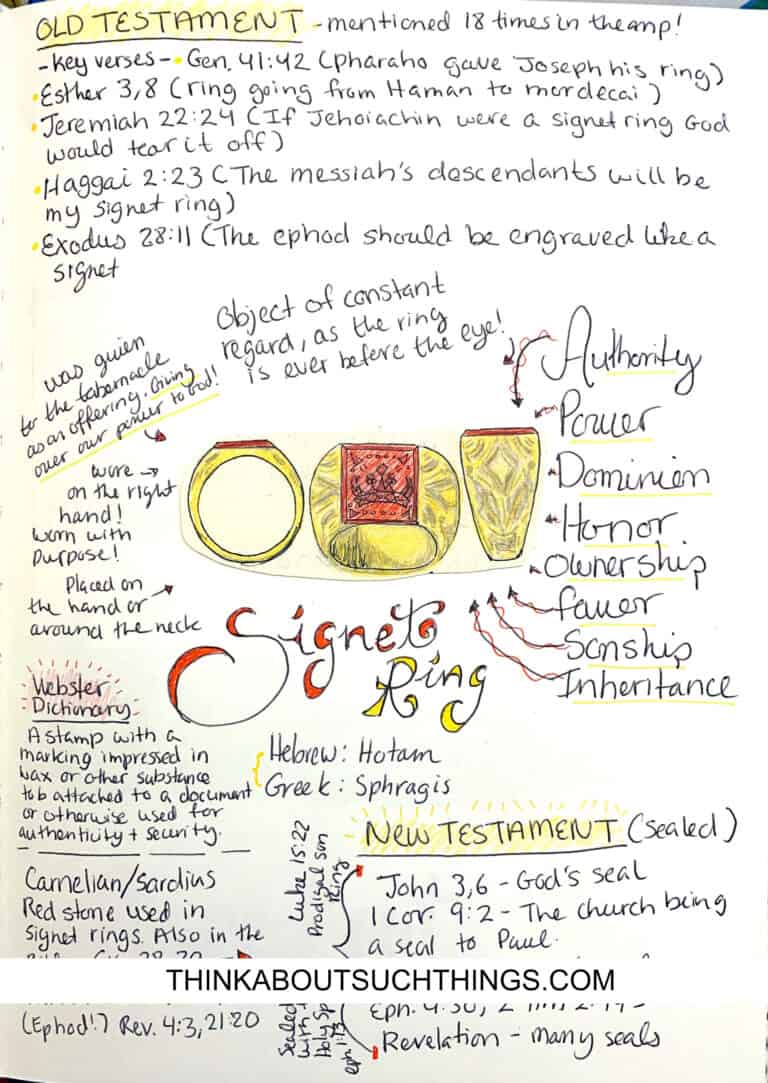 OLD TESTAMENT - mentioned 18 times in the amp!
- key verses - • Gen. 41:42 (pharaho gave Joseph his ring)
• Esther 3,8 (ring going from Haman to mordecai)
• Jeremiah 22:24 (If Jehoiachin were a signet ring God
would tear it off)
• Haggai 2:23 (The messiah's descendants will be
my signet ring)
• Exodus 28:11 (The ephod should be engraved like a
signet
Object of constant
regard, as the ring
is ever before the eye!
was given
to the tabernacle
as an offering. Giving
over our power to God!
wore →
on the right
hand!
worn with
purpose!
Placed on
the hand or
around the neck
Authority
Power
Dominion
Honor
Ownership
favor
Sonship
Inheritance
Signet
Ring
Webster
Dictionary:
A stamp with a
marking impressed in
wax or other substance
to b attached to a document
or otherwise used for
authenticity + security.
Hebrew: Hotam
Greek: Sphragis
Carnelian/Sardius
Red stone used in
signet rings. Also in the
(Ephod!) Rev. 4:3, 21:20
NEW TESTAMENT (sealed)
Luke 15:22
Prodigal son
Ring
John 3,6 - God's seal
1 Cor. 9:2 - The church being
a seal to Paul.
THINKABOUTSUCHTHINGS.COM
Eph. 4:30, 2
Sealed
with
Holy Sp
eph 1:13
Revelation - many seals